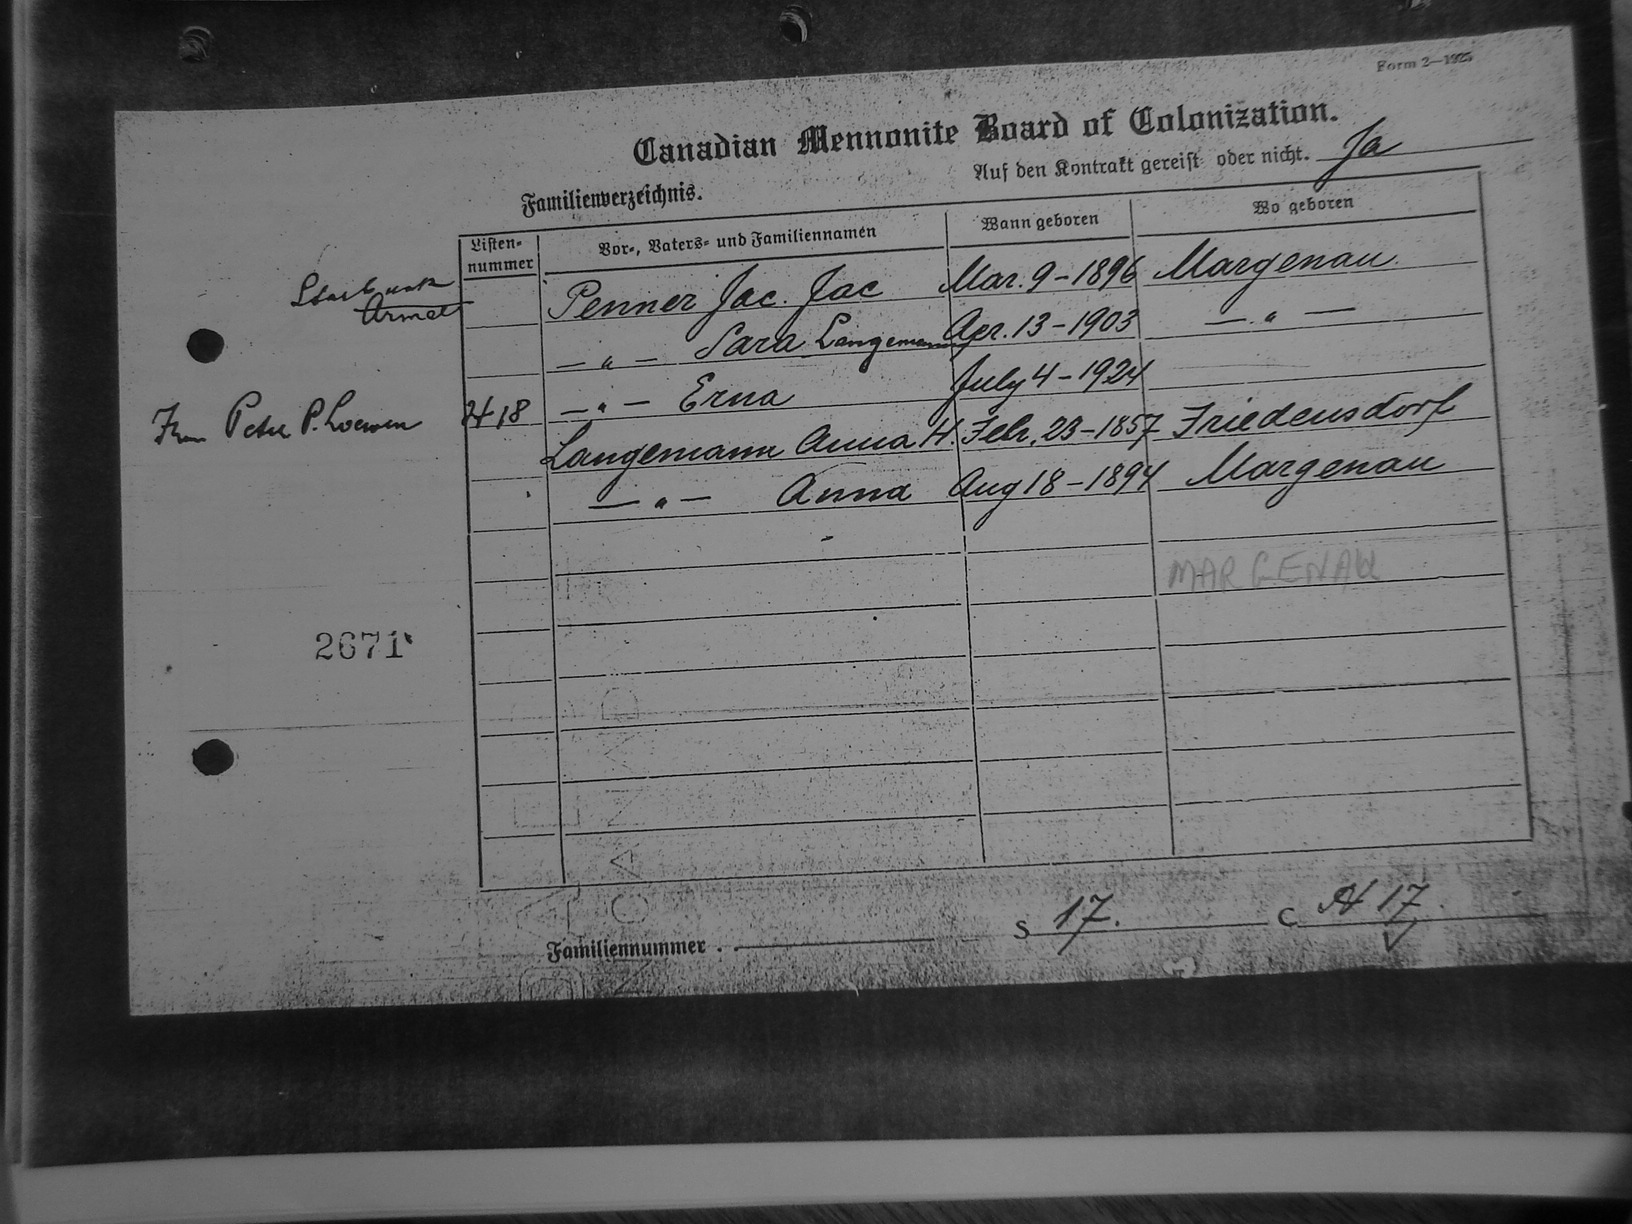 Form 2—1925
Canadian Mennonite Board of Colonization.
Auf den Kontrakt gereist oder nicht. Ja
Familienverzeichnis.
Listen-nummer Vor-, Vaters- und Familiennamen Wann geboren Wo geboren
Penner Jac. Jac Mar. 9-1896 Margenau
— " — Sara Langemann Apr. 13-1903 — " —
— " — Erna July 4-1924
Peter P. Loewen
Langemann Anna H. Febr. 23-1857 Friedensdorf
— " — Anna Aug 18-1894 Margenau
MARGENAU
2671
Familiennummer. S 17. C 17.